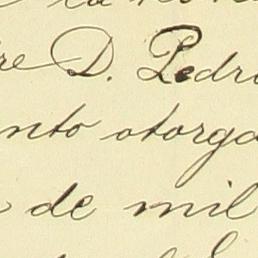 re D. Pedro
nto otorga
de mil